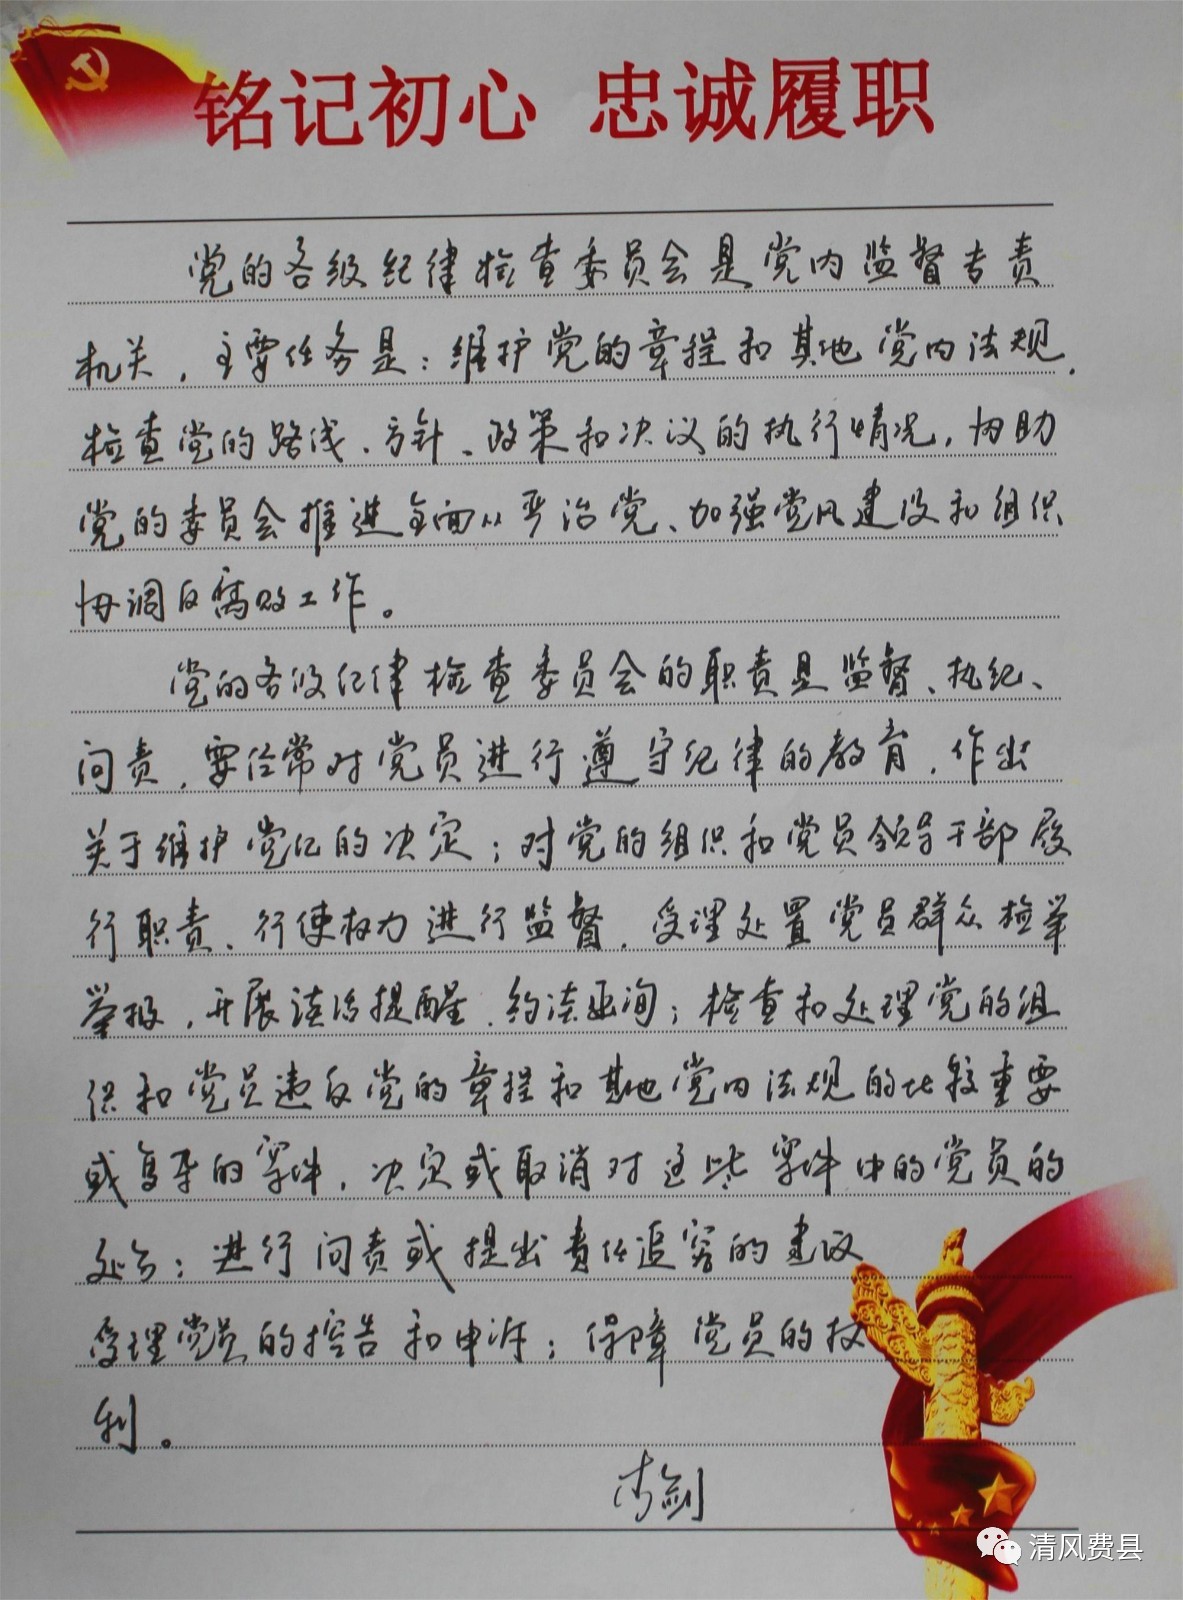 铭记初心 忠诚履职
党的各级纪律检查委员会是党内监督专责
机关，主要任务是：维护党的章程和其他党内法规，
检查党的路线、方针、政策和决议的执行情况，协助
党的委员会推进全面从严治党、加强党风建设和组织
协调反腐败工作。
党的各级纪律检查委员会的职责是监督、执纪、
问责，要经常对党员进行遵守纪律的教育，作出
关于维护党纪的决定；对党的组织和党员领导干部履
行职责、行使权力进行监督，受理处置党员群众检举
举报，开展谈话提醒、约谈函询；检查和处理党的组
织和党员违反党的章程和其他党内法规的比较重要
或复杂的案件，决定或取消对这些案件中的党员的
处分；进行问责或提出责任追究的建议
受理党员的控告和申诉；保障党员的权
利。
清风费县